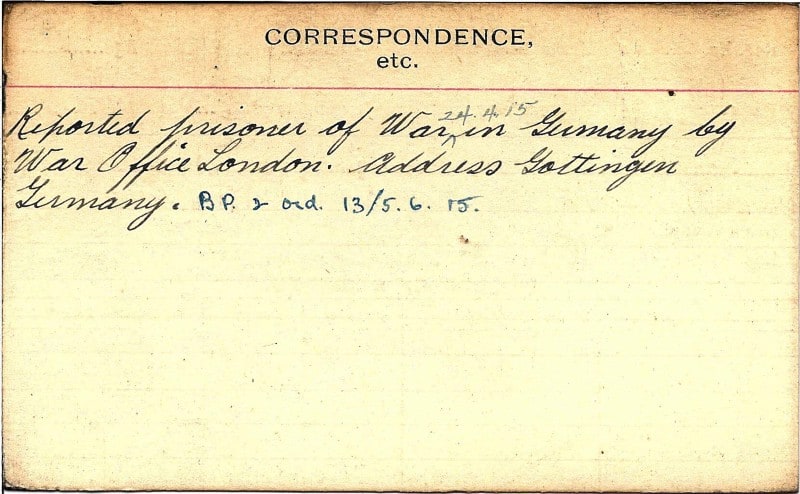 CORRESPONDENCE,
etc.
Reported prisoner of War ^ 24.4.15 in Germany by
War Office London. Address Gottingen
Germany. B P. 2 Ord. 13/5.6.15.